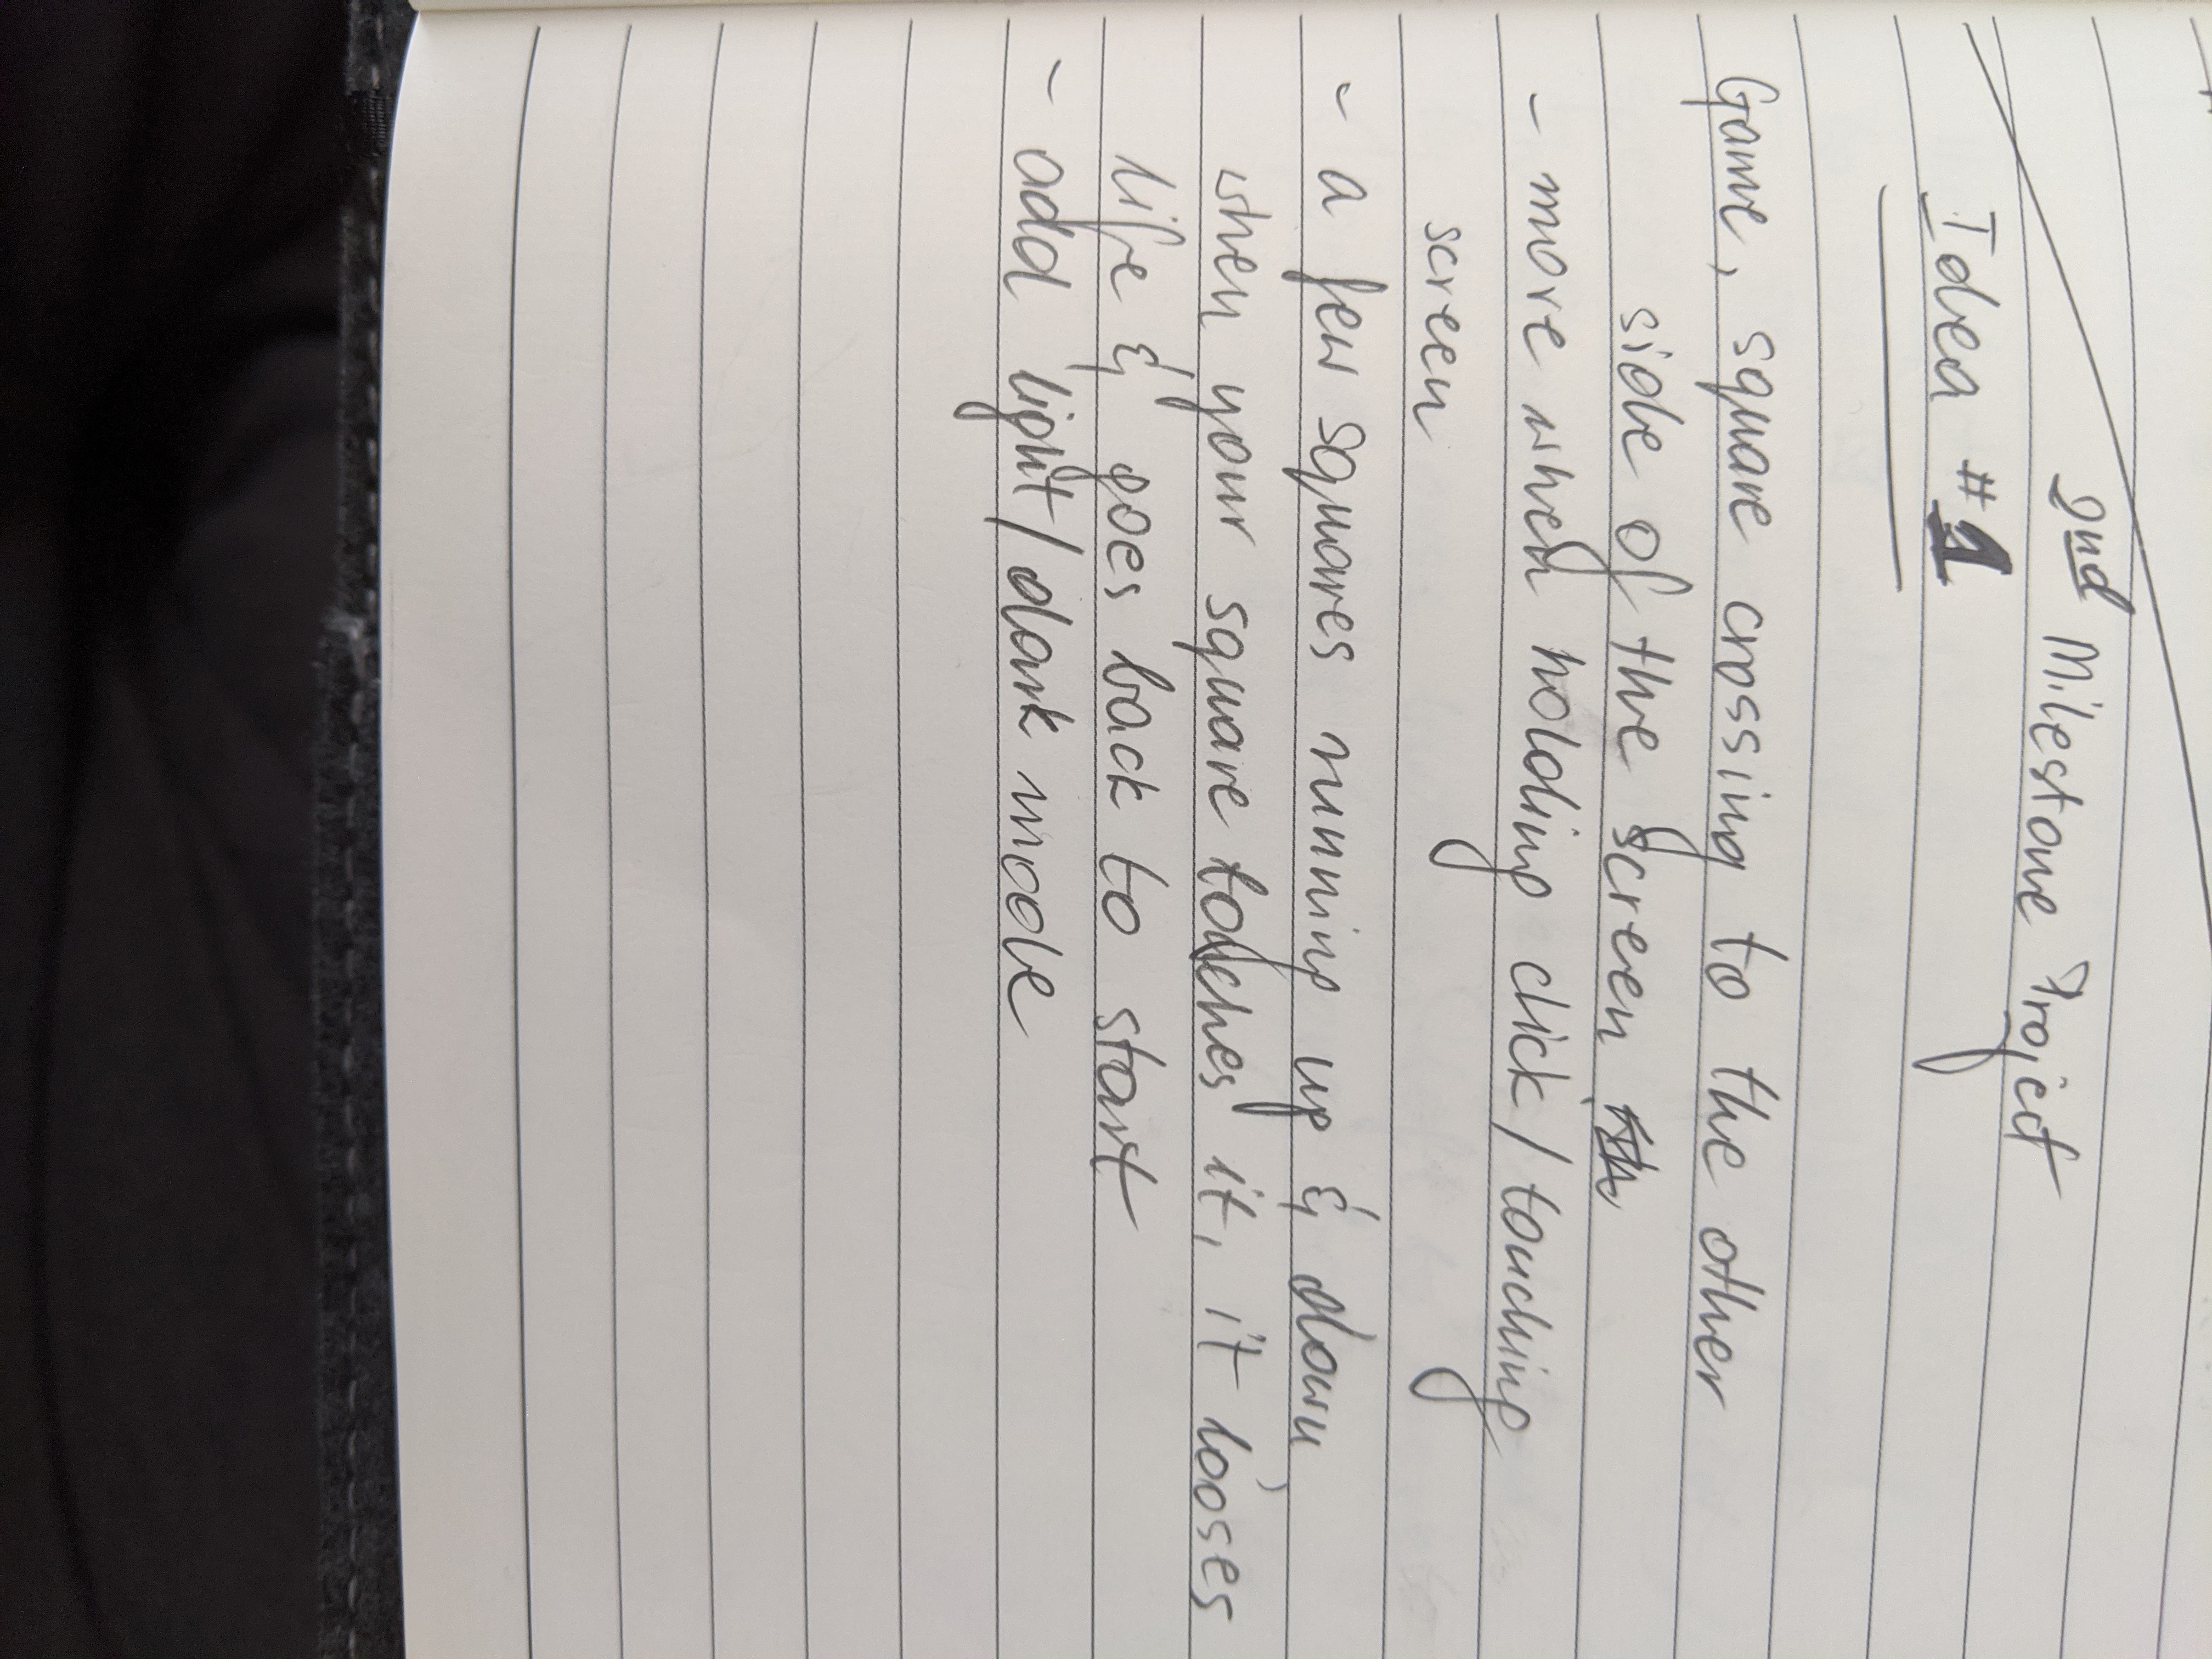 2nd Milestone Project
Idea #1
Game, square crossing to the other
side of the screen
- move when holding click/touching
screen
- a few squares running up & down,
when your square touches it, it looses
life & goes back to start
- add light/dark mode